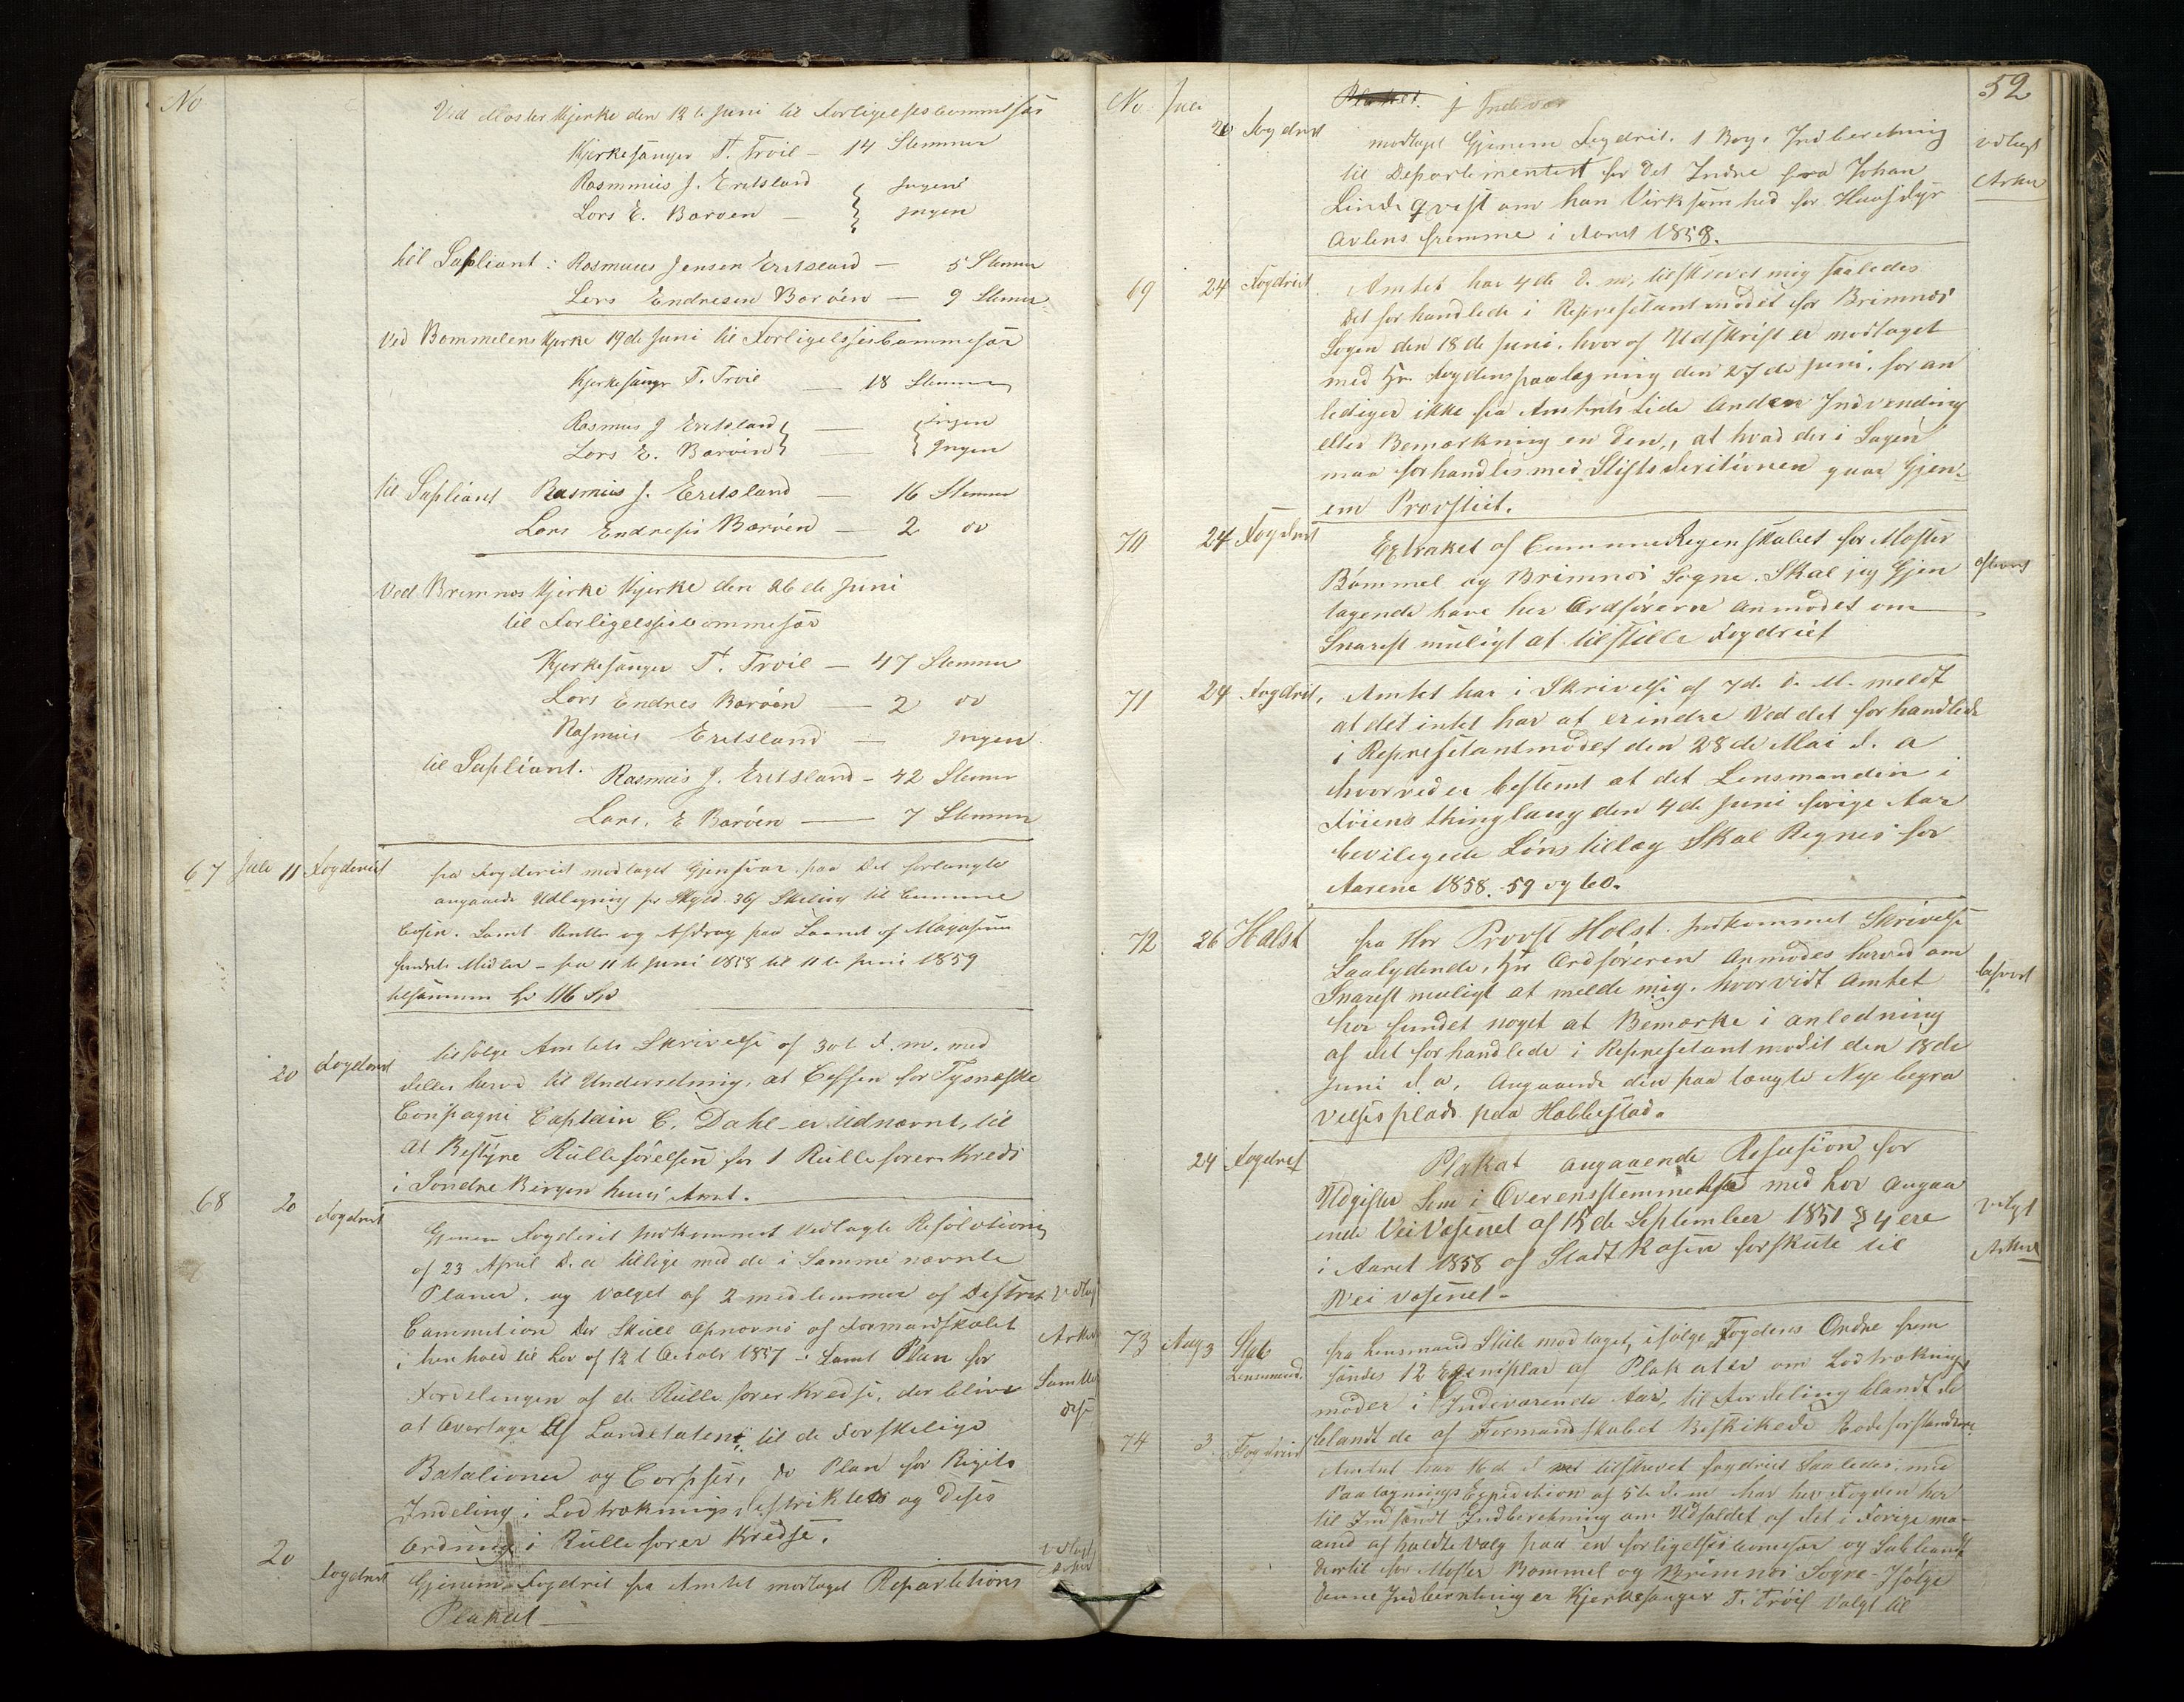 No
Ved Moster Kjerke den 12te Juni til Forligelseskommisær
Kjerkesanger T. Troil – 14 Stemmer
Rasmmus J. Eritsland Ingen
Lars E. Barøen – Ingen
til Supliant: Rasmus Jensen Eritsland – 5 Stemmer
Lars Endresen Barøen – 9 Stemer
Ved Bommelens Kjerke 19de Juni til Forligelsesbommesær
Kjerkesanger T. Troil – 18 Stemmer
Rasmus J Eritsland – Ingen
Lars E. Barøen – Ingen
til Supliant Rasmus J. Eritsland – 16 Stemmer
Lars Endresen Barøen – 2 do
Ved Bremnes Kjerke Kjerke den 26de Juni
til Forligelsesbommesær
Kjerkesanger T. Troil – 47 Stemmer
Lars Endres Barøen – 2 do
Rasmus Eritsland – Ingen
til Supliant. Rasmus J. Eritsland – 42 Stemmer
Lars. E Barøen – 7 Stemmer
67 Juli 11 Fogderiet fra Fogderiet modtaget Gjensvar paa Det forlangte
angaaende Udlegning pr Skyld 36 Skeling til Cumune
Casen. Samt Rentter og Afdrag paa Laanet af Magasins
fondets Midler – fra 11te Juni 1858 til 11te Juni 1859
tilsammen 116 Spd
20 Fogderiet tilfølge Amtets Skrivelse af 30te d. m. med
deles herved til Underretning, at Cheffen for Tysnæske
Conpagni Captain C. Dahl er udnævnt, til
at Bestyre Rulleførelsen for 1 Rulleforer Kreds
i Sondre Bergenhuus Amt.
68 20 Fogderiet
Gjenem Fogderiet Indkommet Vedlagte Resolutioner
af 23 April d. a tillige med de i Samme nævnte
Planer, og valget af 2 medlemmer af Distrets Vedlagt
Commution der Skull Opnævnes af Formandskabet Arkiv
i henhold til Lov af 12t October 1857 – Samt Plan for
Fordelingen af de Rulleforer Kredse, der blive Samtlige
at Overtage Af Landetaten: til de Forskelige disse
Batalioner og Corpser, do Plan for Rigets
Indeling i Lodtræknings, distrikter og Disses
Ordning i Rulleforer Kredse.
20 Fogderiet Gjenem Fogdriet fra Amtet modtaget Repartitions Vedlagt
Plakat – Arkiv
52
No Juli Plakat. f Indevær
20 Fogdriet modtaget Gjenem Fogdriet. 1 Bog. Indberetning vedlagt
til Departementet for det Indre fra Johan Arkiv
Lindeqvist om han Virksomhed for Huusdyr
avlens fremme i Aaret 1858.
69 24 Fogdriet Amtet har 4de d. m, tilskrevet mig saaledes
Det forhandlede i Represetantmødet for Brimnes
Sogen den 18de Juni. hvoraf Udskrift er modtaget
med Hr. Fogdens paategning den 27de Juni. foran
lediger ikke fra Amtets Side Anden Indvending
eller Bemærkning en den, at hvad der i Sagen
maa forhandles med Stifts Deritionen gaar Gjen-
em Provstiet.
70 24 Fogdriet Extraket af CommuneRegenskabet for Moster
Bømmel og Brimnes Sogne. Skal jeg Gjen
tagende have her Ordføreren anmodet om
Snarest muligt at tilstille Fogdriet
71 24 Fogdriet, Amtet har i Skrivelse af 7de d. M. meldt
at det intet har at erindre Ved det forhandlede
i Represetantmødet den 28de Mai d. a
hvorved er bestemt at det Lensmanden i
Føiens thinglaug den 4de Juni forige Aar
bevilegede Løns tillæg Skal Regnes for
Aarene 1858. 59 og 60.
72 26 Halst fra Her Provst Holst. Indkommet Skrivelse
Saalydende, Hr Ordføreren Anmodes herved om besvart
Snarest muligt at melde mig. hvorvidt Amtet
har fundet noget at Bemærke i anledning
af det forhandlede i Represetantmødet den 18de
Juni d. a, Angaaende den paa tængte Nye begra
velsesplads paa Habbestad.
24 Fogdriet Plakat angaaende Refusion for
Udgifter Som i Overensstemmelse med Lov angaa
ende VeiVæsenet af 15de September 1851 § 4 ere Vedlagt
i Aaret 1858 af Stadt Kasen forskute til Arkiv
Vei væsenet –
73 Aug 3 Stub Lensmand. fra Lensmand Stub modtaget, i følge Fogdens Ordre frem
sendes 12 Exenplar af Plakater om Lodtræknings
møder i Indeværende Aar, til Fordeling blandt de
blandt de af Formandskabet Beskikede Rodeforstandere.
74 3 Fogdriet Amtet har 16d d. tilskrevet fogdriet Saaledes. med
Paategnings Expedition af 5te d. m har her Fogden her
til Indsendt Indberetning om Udfaldet af det i Forige ma-
aned afholdte Valg paa en forligelsesbomesær og Subliant
dertil for Moster Bommel og Brimnes Sogne – Ifølge
denne Indberetning er Kjerkesanger T. Troil Valgt til